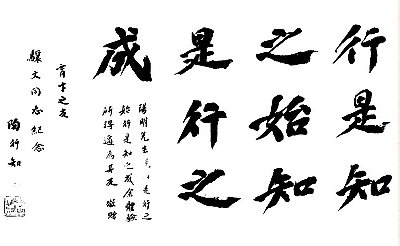 行是知
之始知
是行之
成
陽明先生是行之
始行是知之成余體驗
所得適為其反 贈
育才之友
文同志紀念
陶行知